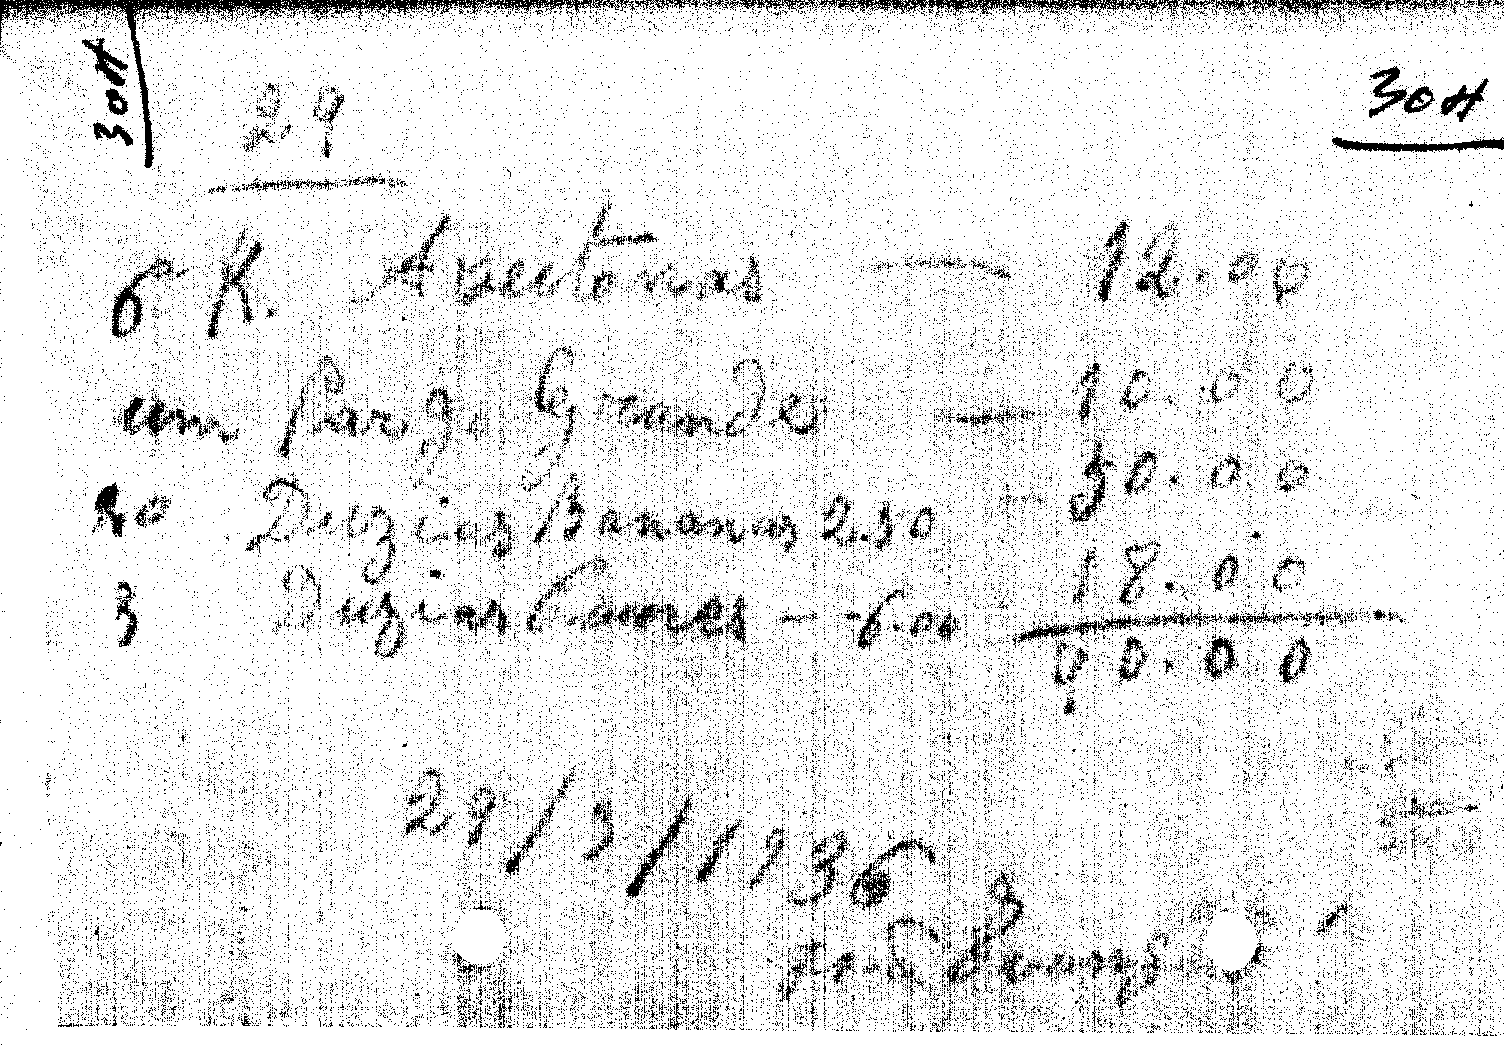 30H
30H
29
6 K. Aseitonas — 12.00
um Pargo Grande — 10.00
20 Duzias Bananas 2.50 — 50.00
3 Duzias Cauves — 6.00 18.00
90.00
29/3/1936